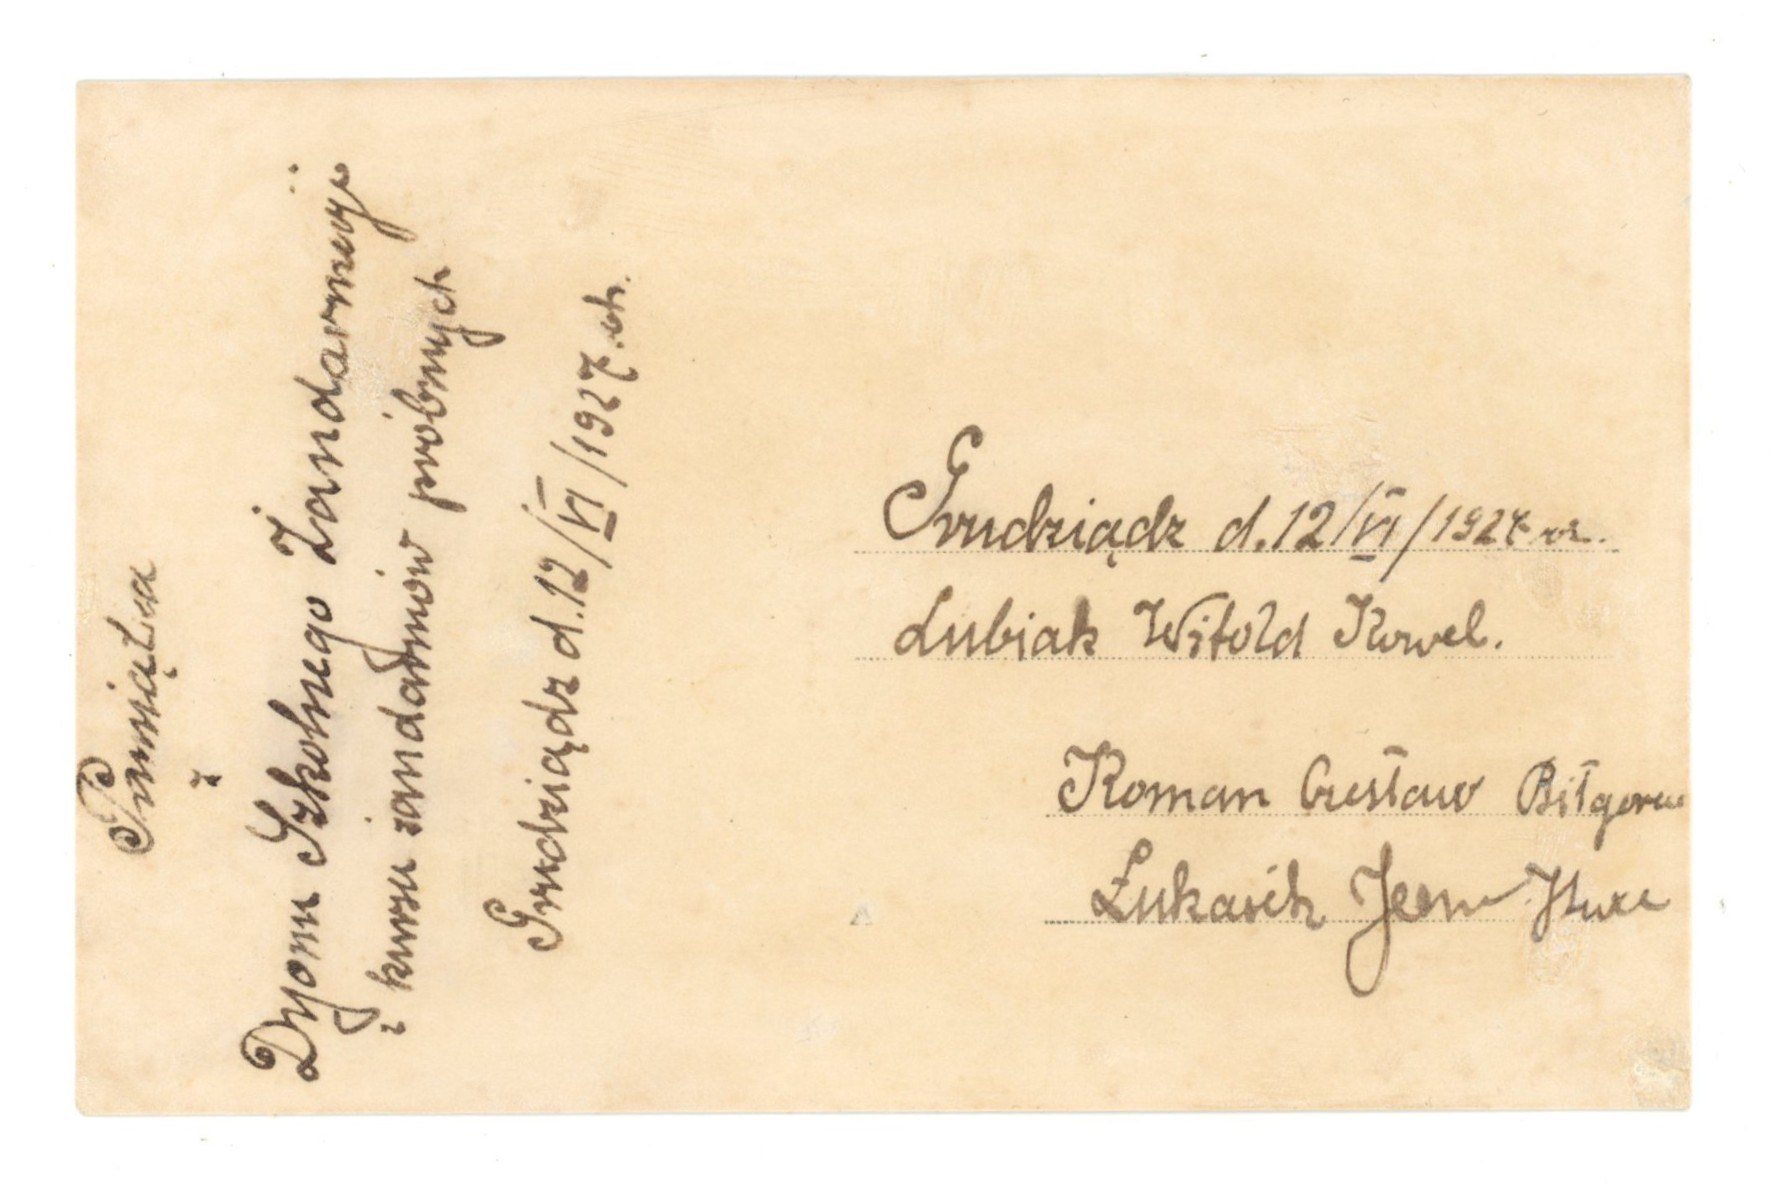 Pamiątka
z
Dyonu Szkolnego Żandarmerji
i kursu żandarmów próbnych
Grudziądz d. 12/VI/1927. r.
Grudziądz d. 12/VI/1927 r.
Lubiak Witold Kowel.
Roman Czesław Biłgoraj
Łukasik Jan